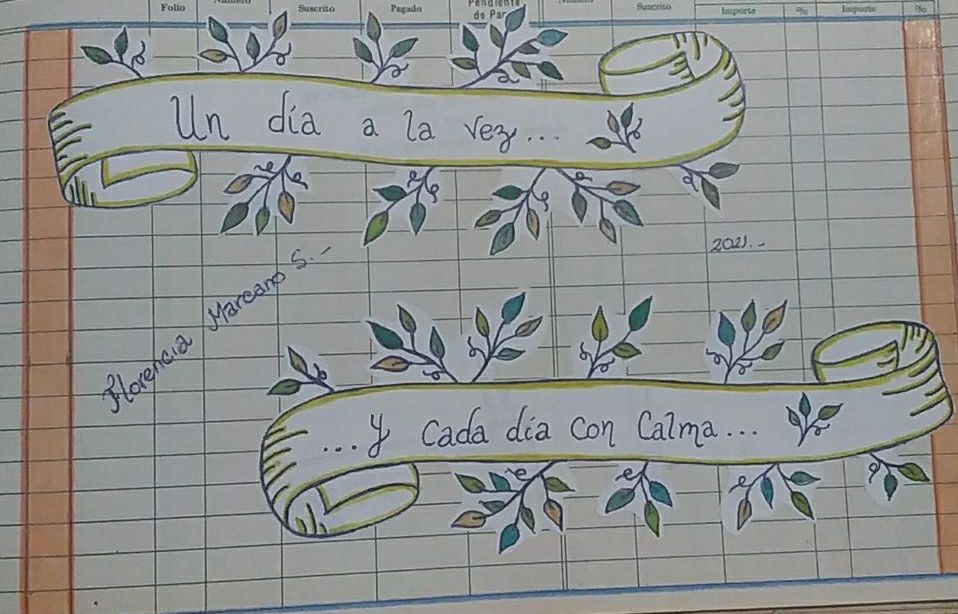 Folio
Suscrito
Pagado
Pendiente
de Par
Suscrito
Importe
%
Importe
%
Un día a la vez...
2021.-
Florencia Marcano S.-
...y cada día con calma...